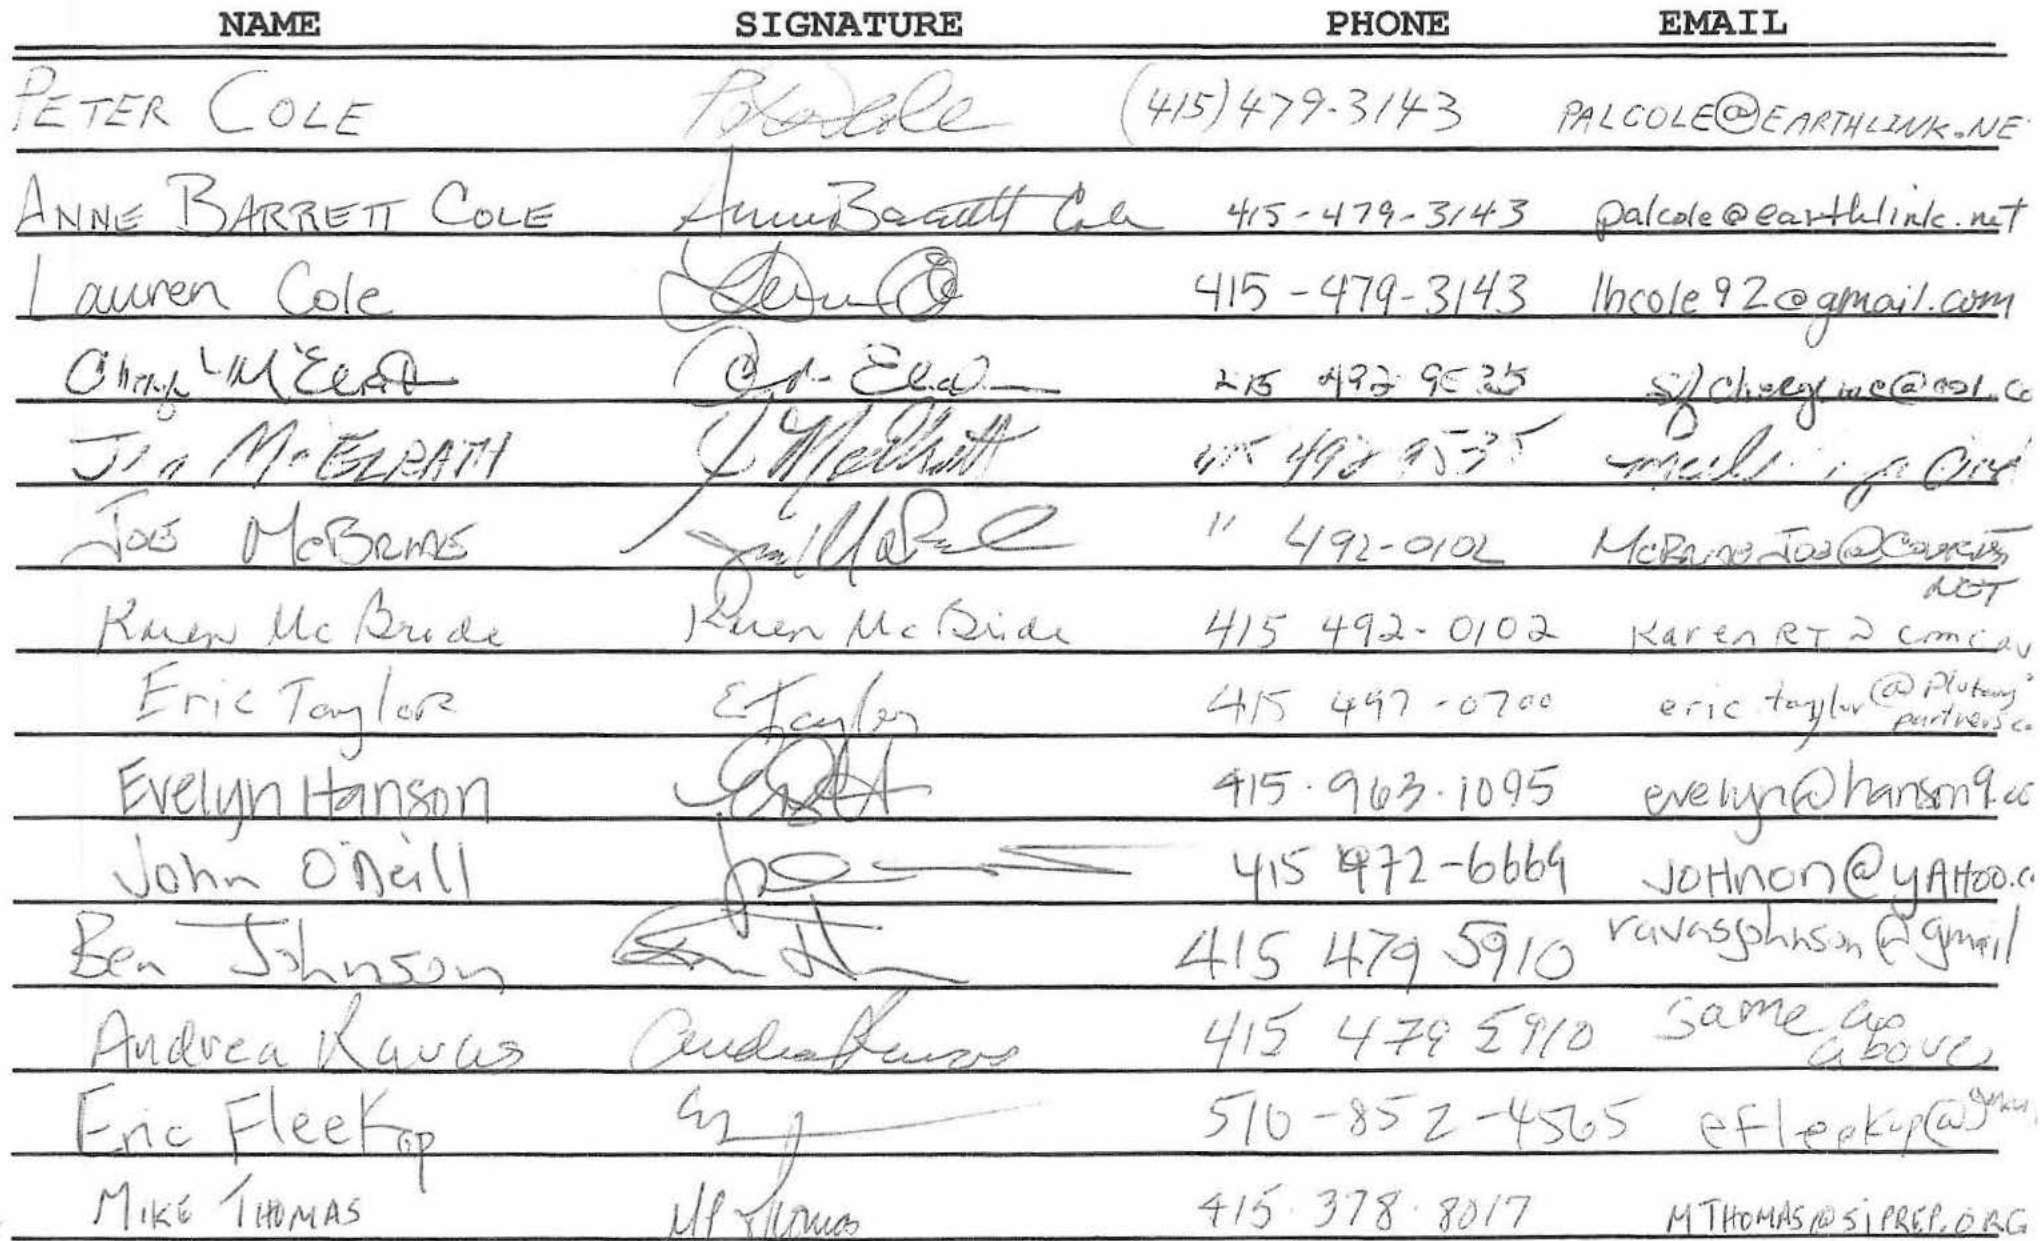 NAME SIGNATURE PHONE EMAIL
PETER COLE (415)479-3143 PALCOLE@EARTHLINK.NE
ANNE BARRETT COLE Anne Barrett Cole 415-479-3143 palcole@earthlink.net
Lauren Cole 415-479-3143 lhcole92@gmail.com
McElrath 492 9535
McELRATH J McElrath 492 9535
JOE McBRIDE " 492-0102
NET
Karen McBride Karen McBride 415 492-0102 Karen RT
Eric Taylor E Taylor 415 497-0700 eric taylor @
partners
Evelyn Hanson 415.963.1095 evelyn@
John O'Neill 415 472-6669 JOHNON@YAHOO.C
Ben Johnson 415 479 5910 ravasjohnson@gmail
Andrea Ravas Andrea Ravas 415 479 5910 same as
above
Eric Fleekop 510-852-4565
MIKE THOMAS MP Thomas 415.378.8017 MTHOMAS@SIPREP.ORG